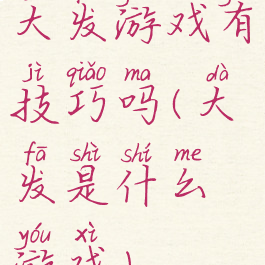 大发游戏有
jì qiǎo ma dà
技巧吗(大
fā shì shí me
发是什么
yóu xì
游戏)